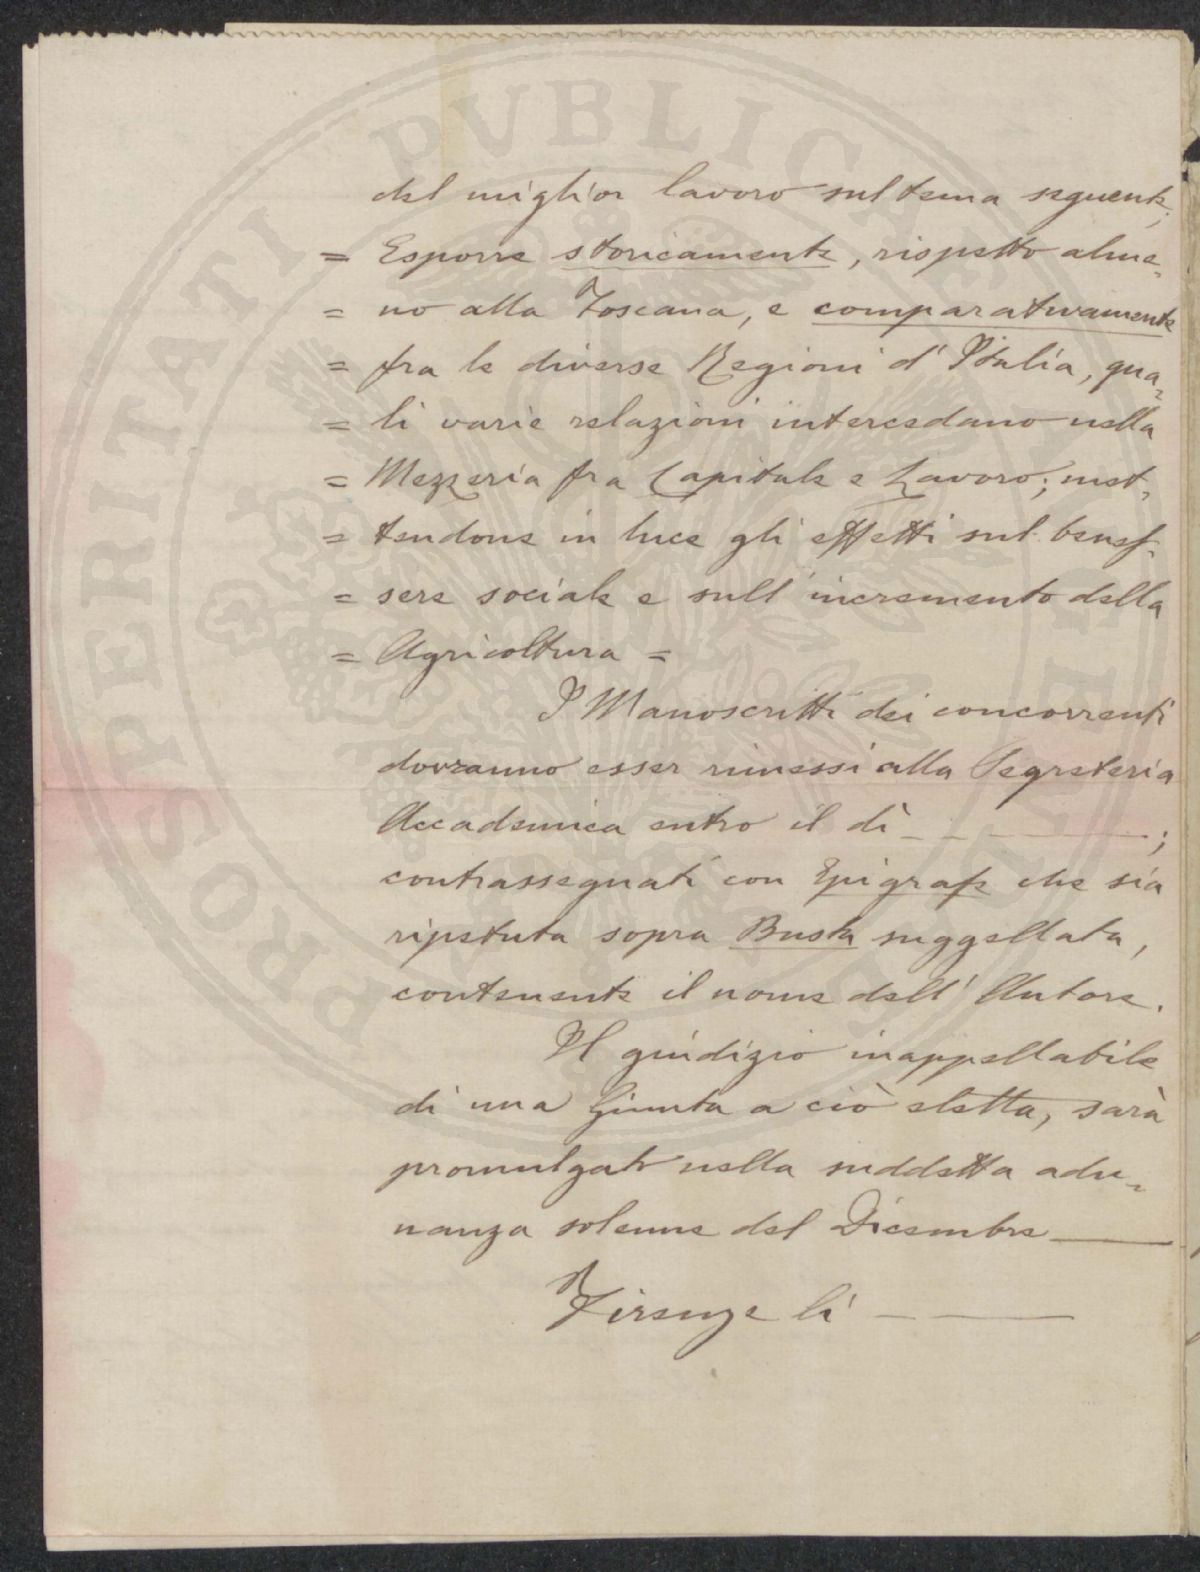 del miglior lavoro sul tema seguente;
= Esporre storicamente, rispetto alme=
= no alla Toscana, e comparativamente
= fra le diverse Regioni d'Italia, qua=
= li varie relazioni intercedano nella
= Mezzeria fra Capitale e Lavoro; met=
= tendone in luce gli effetti sul benes=
= sere sociale e sull'incremento della
= Agricoltura =
I Manoscritti dei concorrenti
dovranno esser rimessi alla Segreteria
Accademica entro il dì _ _ ______;
contrassegnati con Epigrafe che sia
ripetuta sopra Busta suggellata,
contenente il nome dell'Autore.
Il giudizio inappellabile
di una Giunta a ciò eletta, sarà
promulgato nella suddetta adu=
nanza solenne del Dicembre ____
Firenze li _ ____
PROSPERITATI PVBLICAE